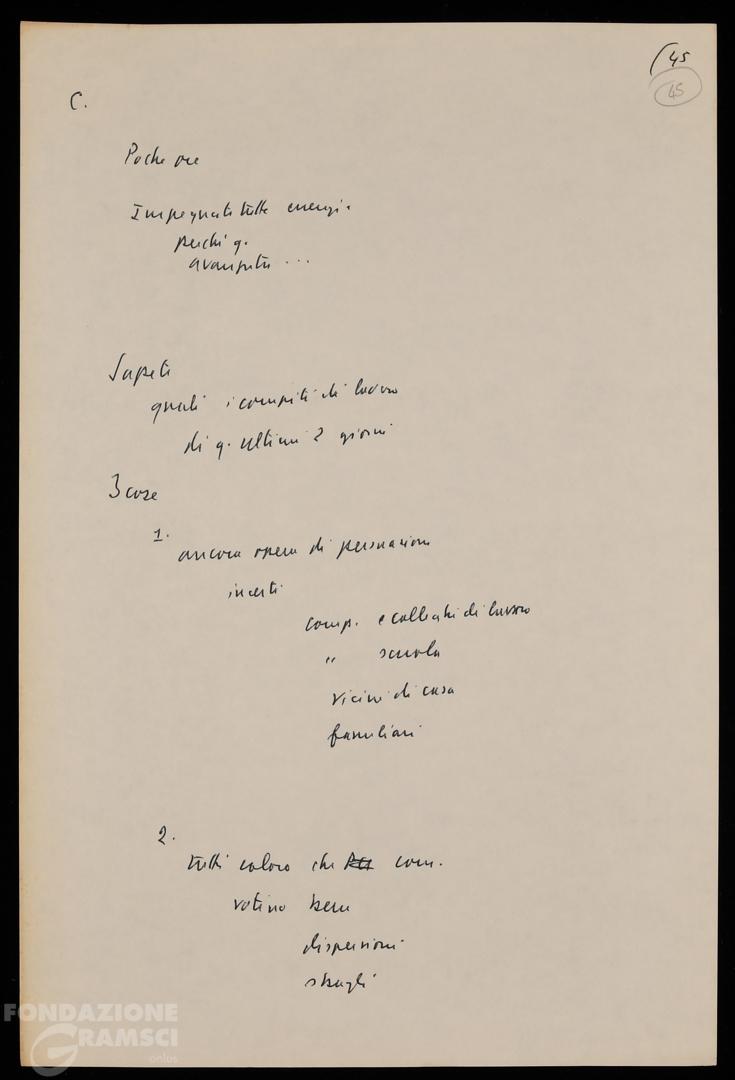 (45
45
C.
Poche ore
Impegnate tutte energie
perché q.
avamposto ...
Sapete
quali i compiti di lavoro
di q. ultimi 2 giorni
3 cose
1.
ancora opera di persuasione
incerti
comp. e colleghi di lavoro
" scuola
vicini di casa
familiari
2.
tutti coloro che com.
votino bene
dispersioni
sbagli
FONDAZIONE
GRAMSCI
onlus